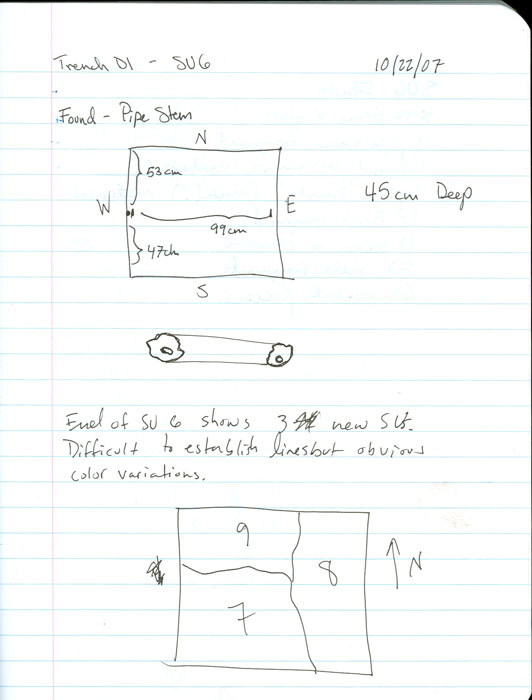 Trench D1 - SU6 10/22/07
Found - Pipe Stem
N
53cm
W E 45cm Deep
99cm
47cm
S
End of SU 6 shows 3 new SUs.
Difficult to establish lines but obvious
color variations.
9
8 N
7